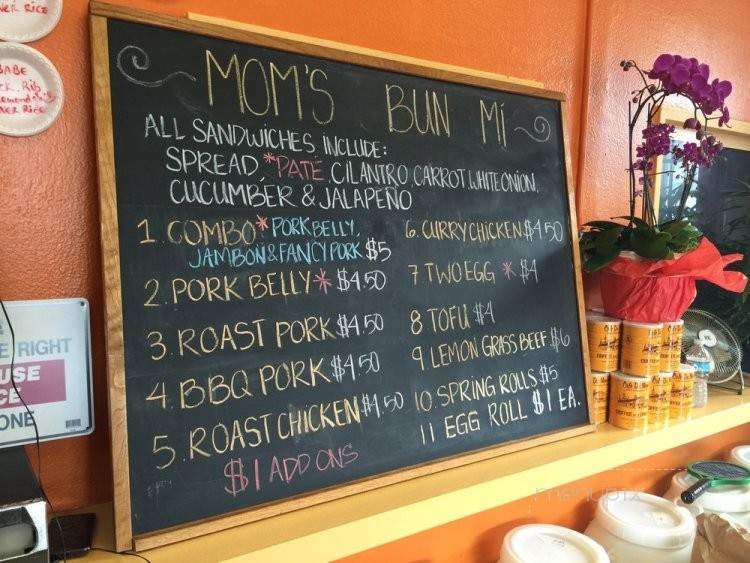 MOM'S BUN Mi
ALL SANDWiCHES iNCLUDE:
SPREAD, *PATÉ, CiLANTRO, CARROT, WHITE ONiON,
CUCUMBER & JALAPEÑO
1. COMBO* PORK BELLY,
JAMBON & FANCY PORK $5
2. PORK BELLY* $4.50
3. ROAST PORK $4.50
4. BBQ PORK $4.50
5. ROAST CHICKEN $4.50
$1 ADD ONS
6. CURRY CHICKEN $4.50
7. TWO EGG * $4
8 TOFU $4
9. LEMON GRASS BEEF $6
10. SPRING ROLLS $5
11 EGG ROLL $1 EA.
RIGHT
USE
ONE
RICE